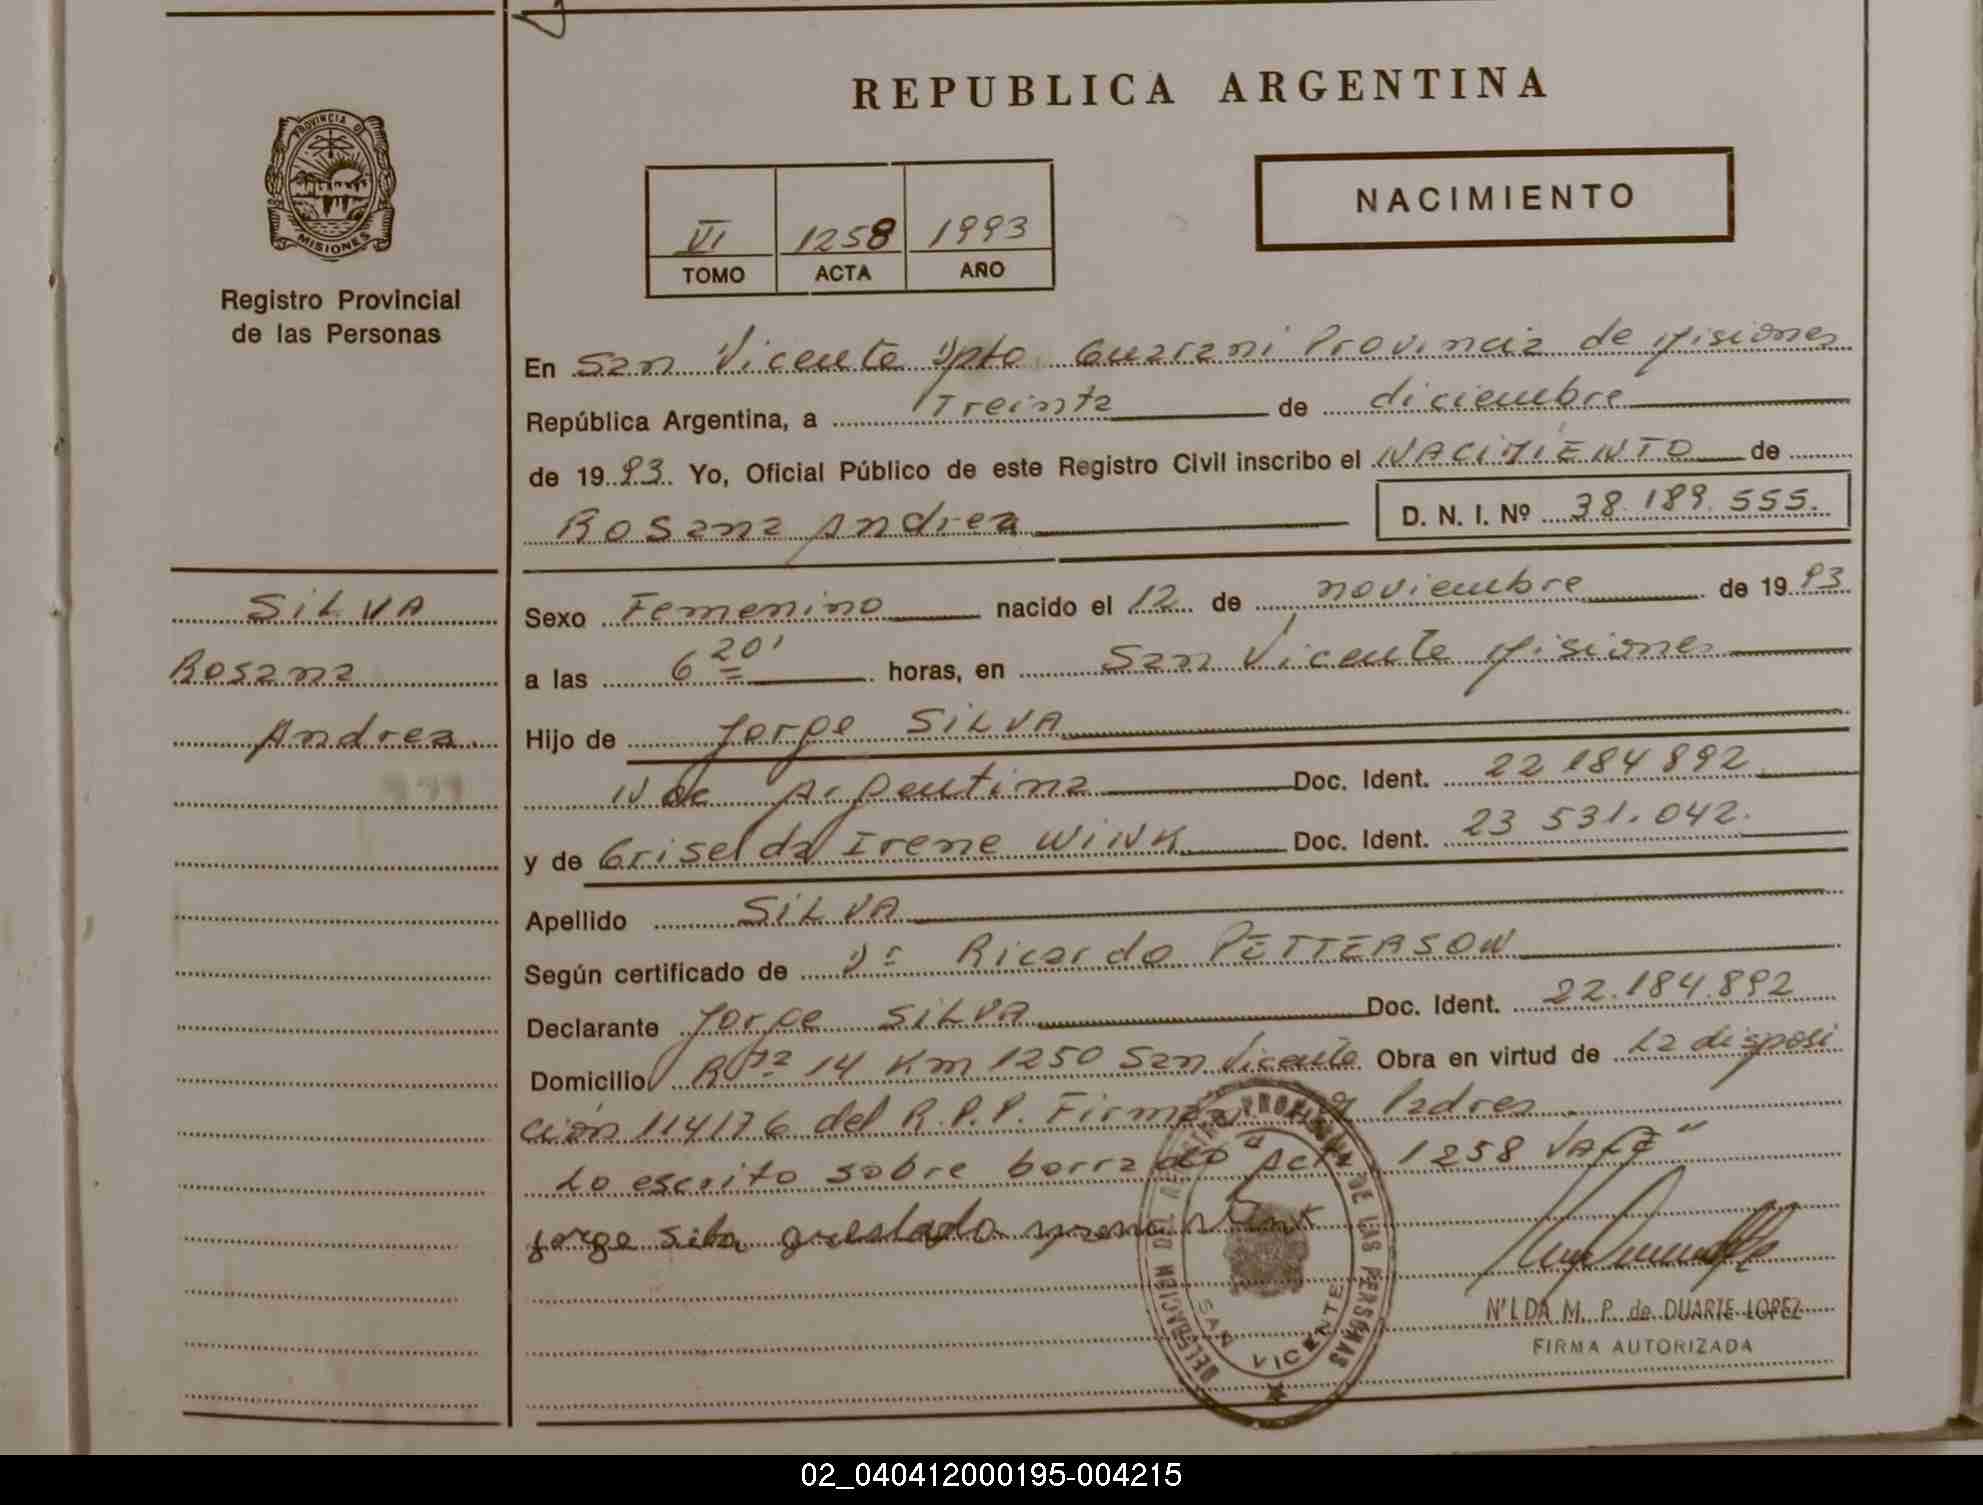 REPUBLICA ARGENTINA
PROVINCIA DE
MISIONES
Registro Provincial
de las Personas
VI 1258 1993
TOMO ACTA AÑO
NACIMIENTO
En San Vicente Dpto Guarani Provincia de Misiones
República Argentina, a Treinta de diciembre
de 1993. Yo, Oficial Público de este Registro Civil inscribo el NACIMIENTO de
Rosana Andrea D. N. I. Nº 38.189.555.
SILVA
Rosana
Andrea.
Sexo Femenino nacido el 12 de noviembre de 1993
a las 6 20' horas, en San Vicente Misiones
Hijo de Jorge SILVA
N de Argentina Doc. Ident. 22 184 892
y de Griselda Irene WINK Doc. Ident. 23 531.042.
Apellido SILVA
Según certificado de Dr Ricardo PETTERSON
Declarante Jorge SILVA Doc. Ident. 22.184.892
Domicilio Rta 14 Km 1250 San Vicente Obra en virtud de La disposi
ción 114176 del R.P.P. Firman Padres.
Lo escrito sobre borrado "Acta 1258 VALE"
Jorge Silva Wink
DELEGACION DEL REGISTRO PROVINCIAL DE LAS PERSONAS
SAN VICENTE
NILDA M. P. de DUARTE LOPEZ
FIRMA AUTORIZADA
02_040412000195-004215